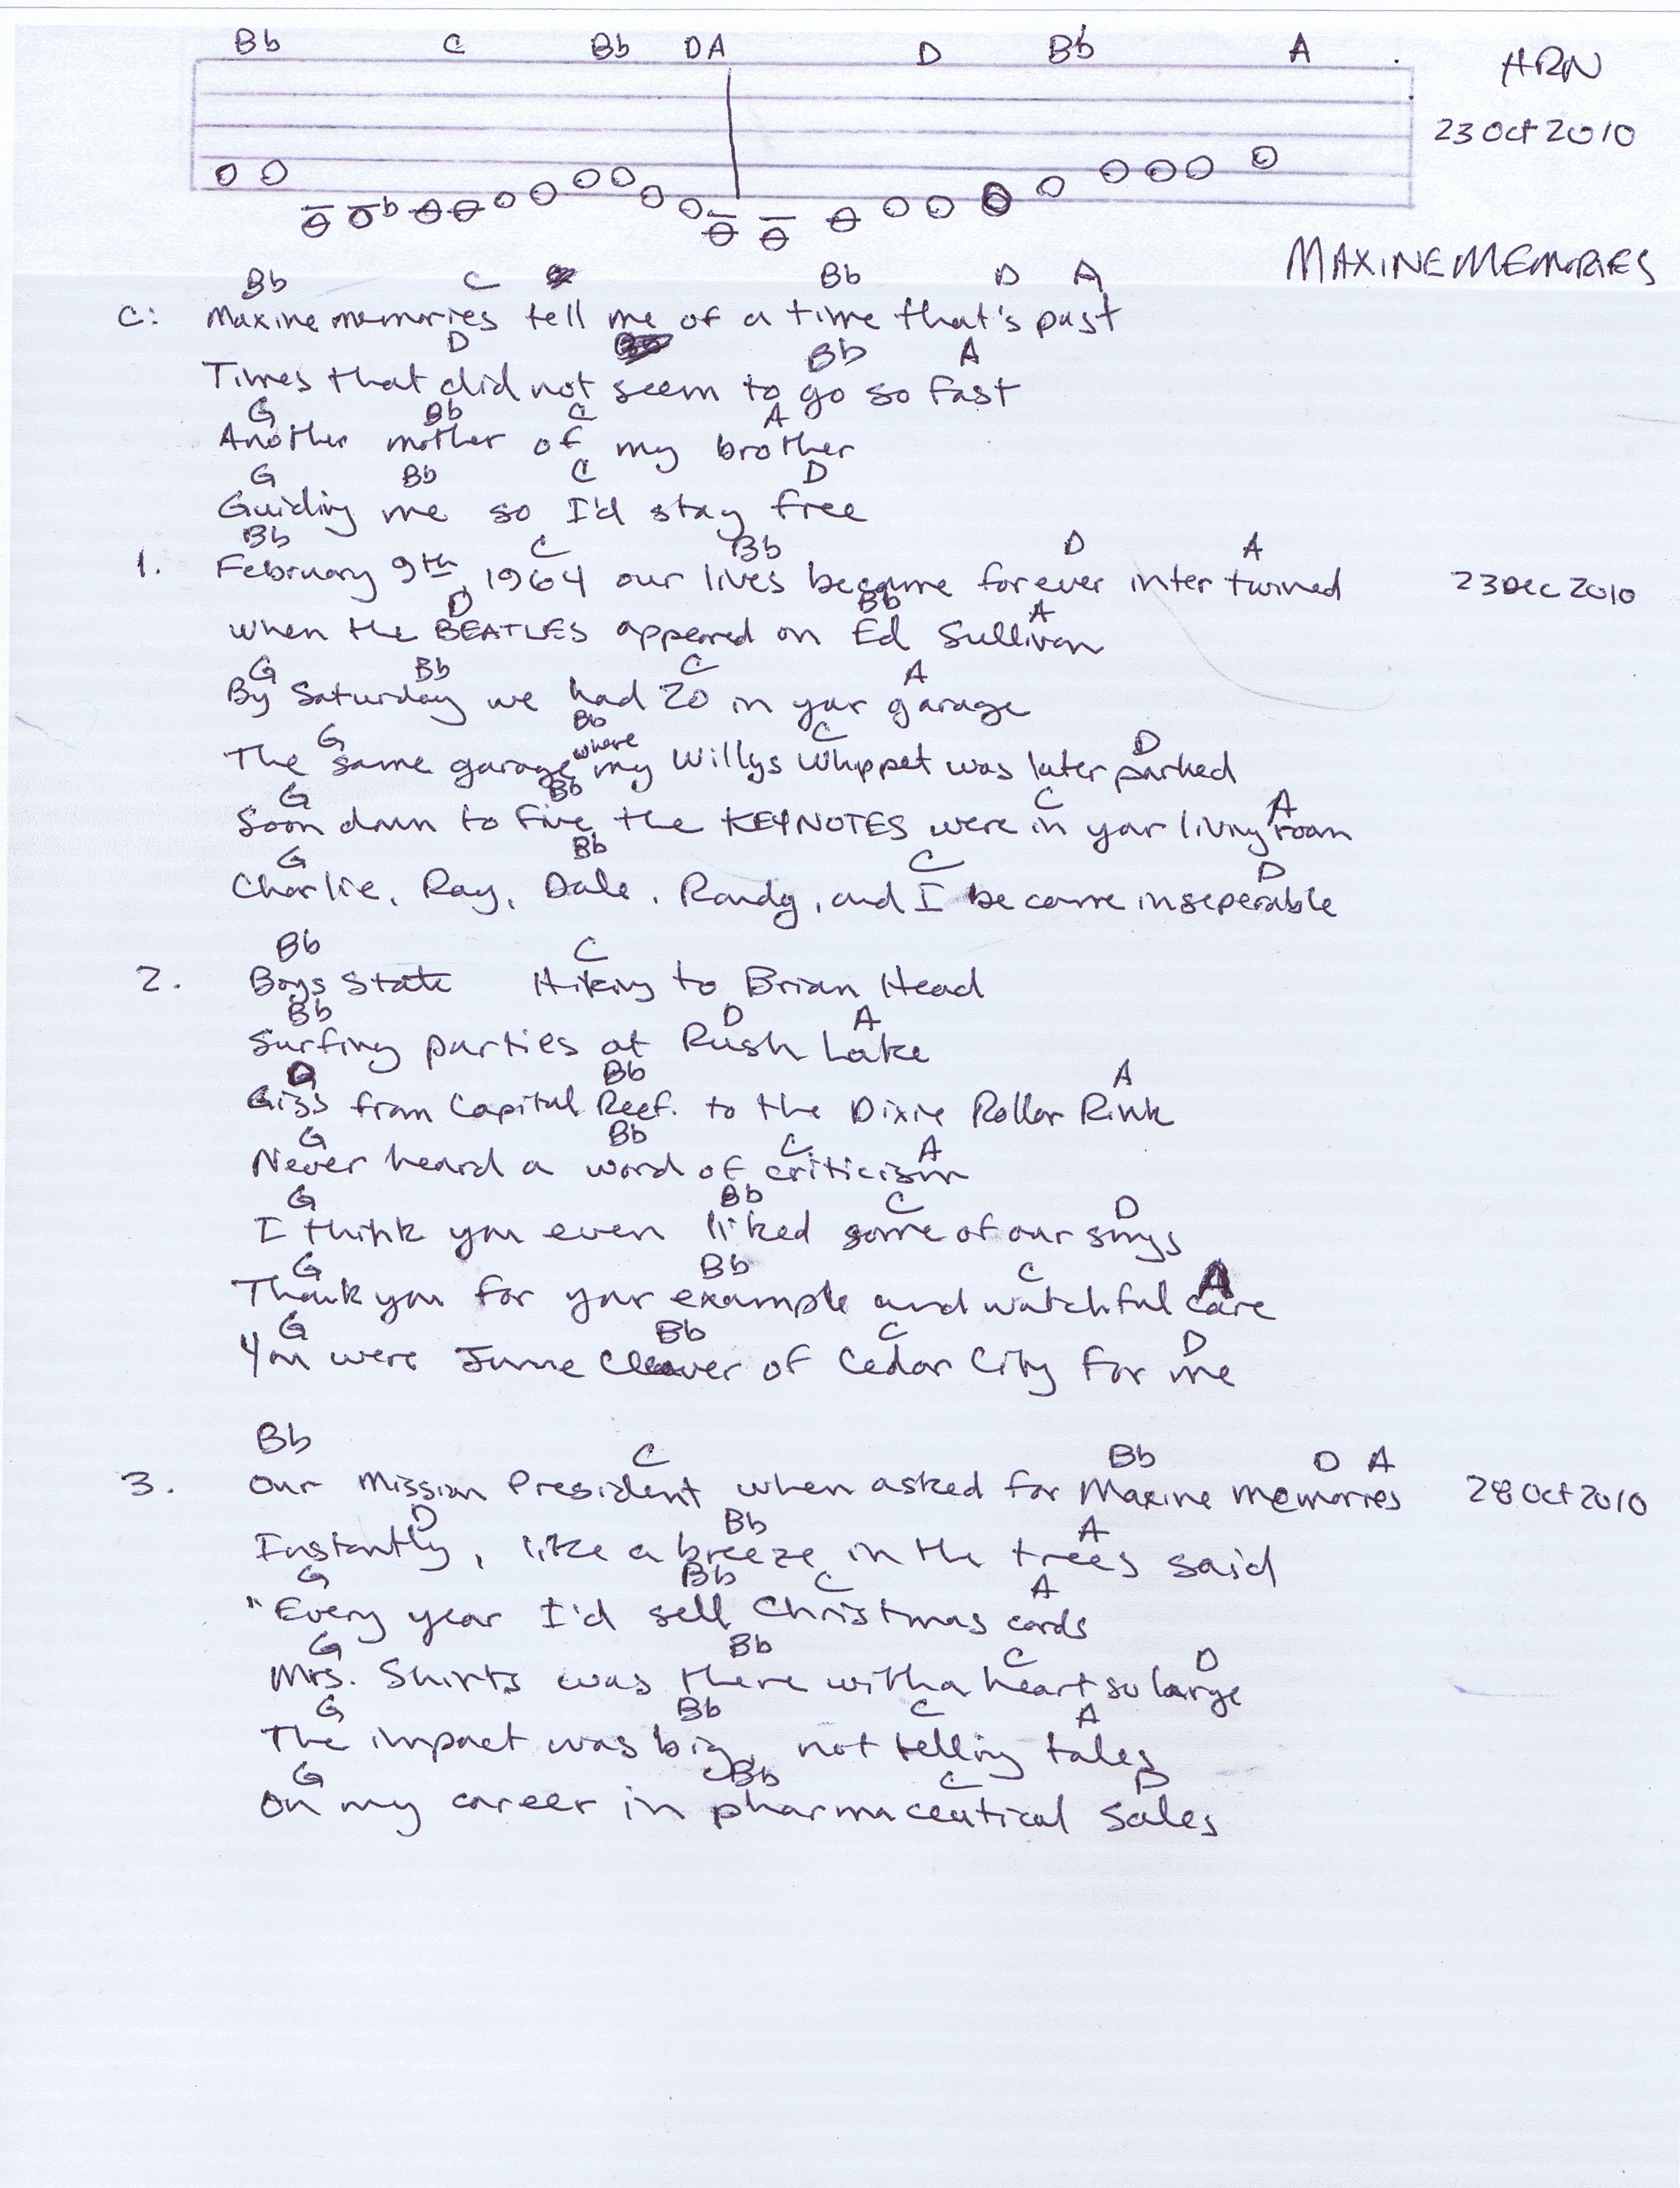 Bb C Bb D A D Bb A
HRN
23 Oct 2010
b
MAXINE MEMORIES
Bb C Bb D A
C: Maxine memories tell me of a time that's past
D Bb A
Times that did not seem to go so fast
G Bb C A
Another mother of my brother
G Bb C D
Guiding me so I'd stay free
Bb C Bb D A
1. February 9th, 1964 our lives became forever intertwined 23 Dec 2010
D Bb A
when the BEATLES appeared on Ed Sullivan
G Bb C A
By Saturday we had 20 in your garage
G Bb C D
The same garage where my Willys Whippet was later parked
G Bb C A
Soon down to five the KEYNOTES were in your living room
G Bb C D
Charlie, Ray, Dale, Randy, and I became inseperable
Bb C
2. Boys State Hiking to Brian Head
Bb D A
Surfing parties at Rush Lake
G Bb A
Gigs from Capital Reef to the Dixie Rollar Rink
G Bb C A
Never heard a word of criticism
G Bb C D
I think you even liked some of our songs
G Bb C A
Thank you for your example and watchful care
G Bb C D
You were June Cleaver of Cedar City for me
Bb C Bb D A
3. Our Mission President when asked for Maxine memories 28 Oct 2010
D Bb A
Instantly, like a breeze in the trees said
G Bb C A
"Every year I'd sell Christmas cards
G Bb C D
Mrs. Shirts was there with a heart so large
G Bb C A
The impact was big, not telling tales
G Bb C D
On my career in pharmaceutical sales